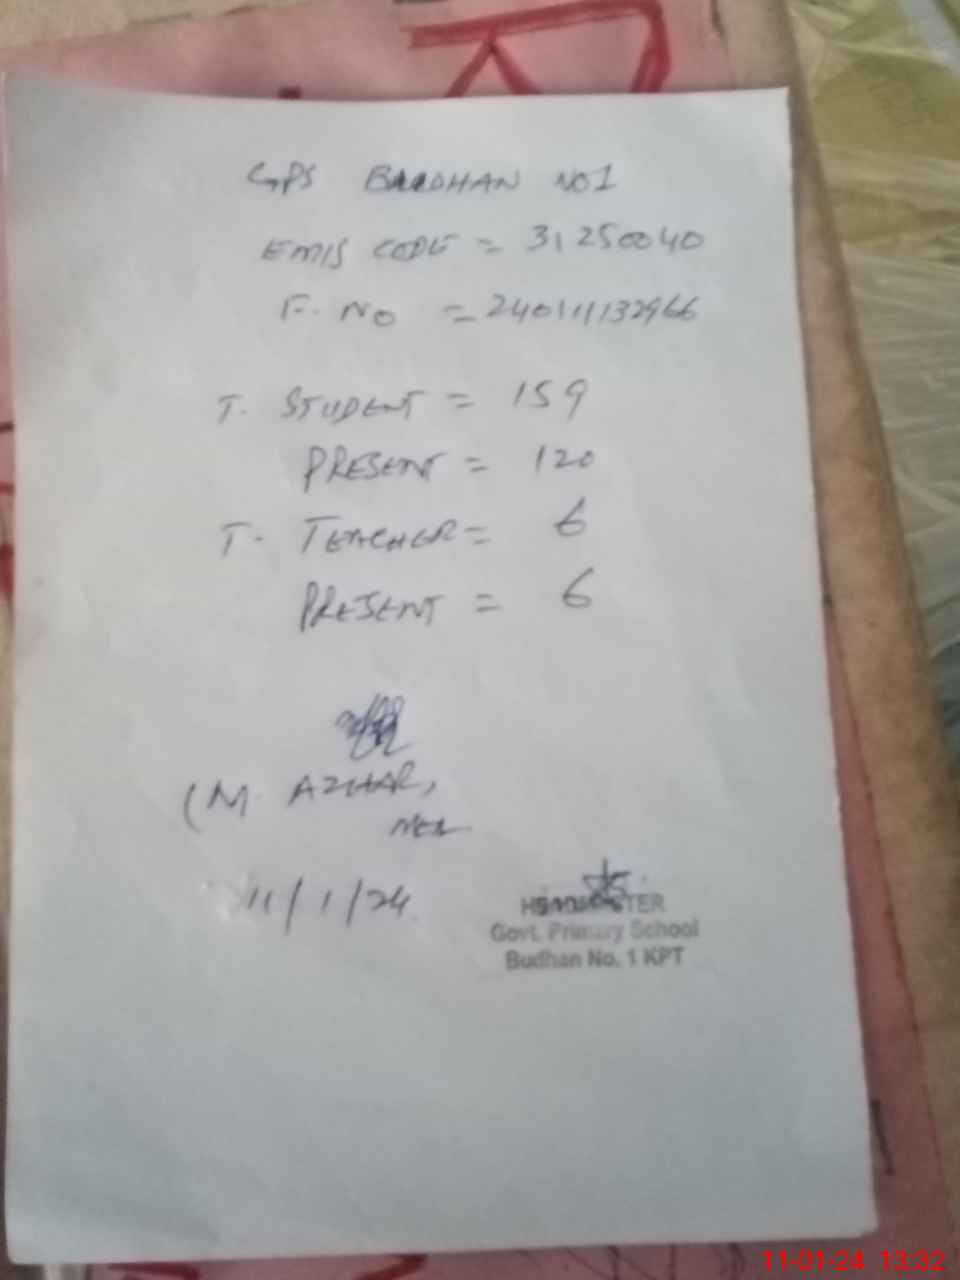 GPS BUDHAN NO1
EMIS CODE = 31250040
F. NO = 240111132966
T. STUDENT = 159
PRESENT = 120
T. TEACHER = 6
PRESENT = 6
(M. AZHAR,
11/1/24
HEADMASTER
Govt. Primary School
Budhan No. 1 KPT
11-01-24 13:32